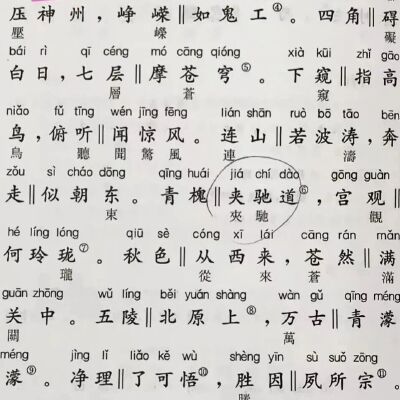 压神州，峥嵘‖如鬼工④。四角‖碍
壓 嶸 礙
bái rì qī céng mó cāng qióng xià kuī zhǐ gāo
白日，七层‖摩苍穹⑤。下窥‖指高
層 蒼 窺
niǎo fǔ tīng wén jīng fēng lián shān ruò bō tāo bēn
鸟，俯听‖闻惊风。连山‖若波涛，奔
鳥 聽 聞 驚 風 連 濤
zǒu sì cháo dōng qīng huái jiá chí dào gōng guàn
走‖似朝东。青槐‖夹驰道⑥，宫观‖
東 夾 馳 觀
hé líng lóng qiū sè cóng xī lái cāng rán mǎn
何玲珑⑦。秋色‖从西来，苍然‖满
瓏 從 來 蒼 滿
guān zhōng wǔ líng běi yuán shàng wàn gǔ qīng méng
关中。五陵‖北原上⑧，万古‖青濛
關 萬
méng jìng lǐ liǎo kě wù shèng yīn sù suǒ zōng
濛⑨。净理‖了可悟⑩，胜因‖夙所宗⑪。
勝